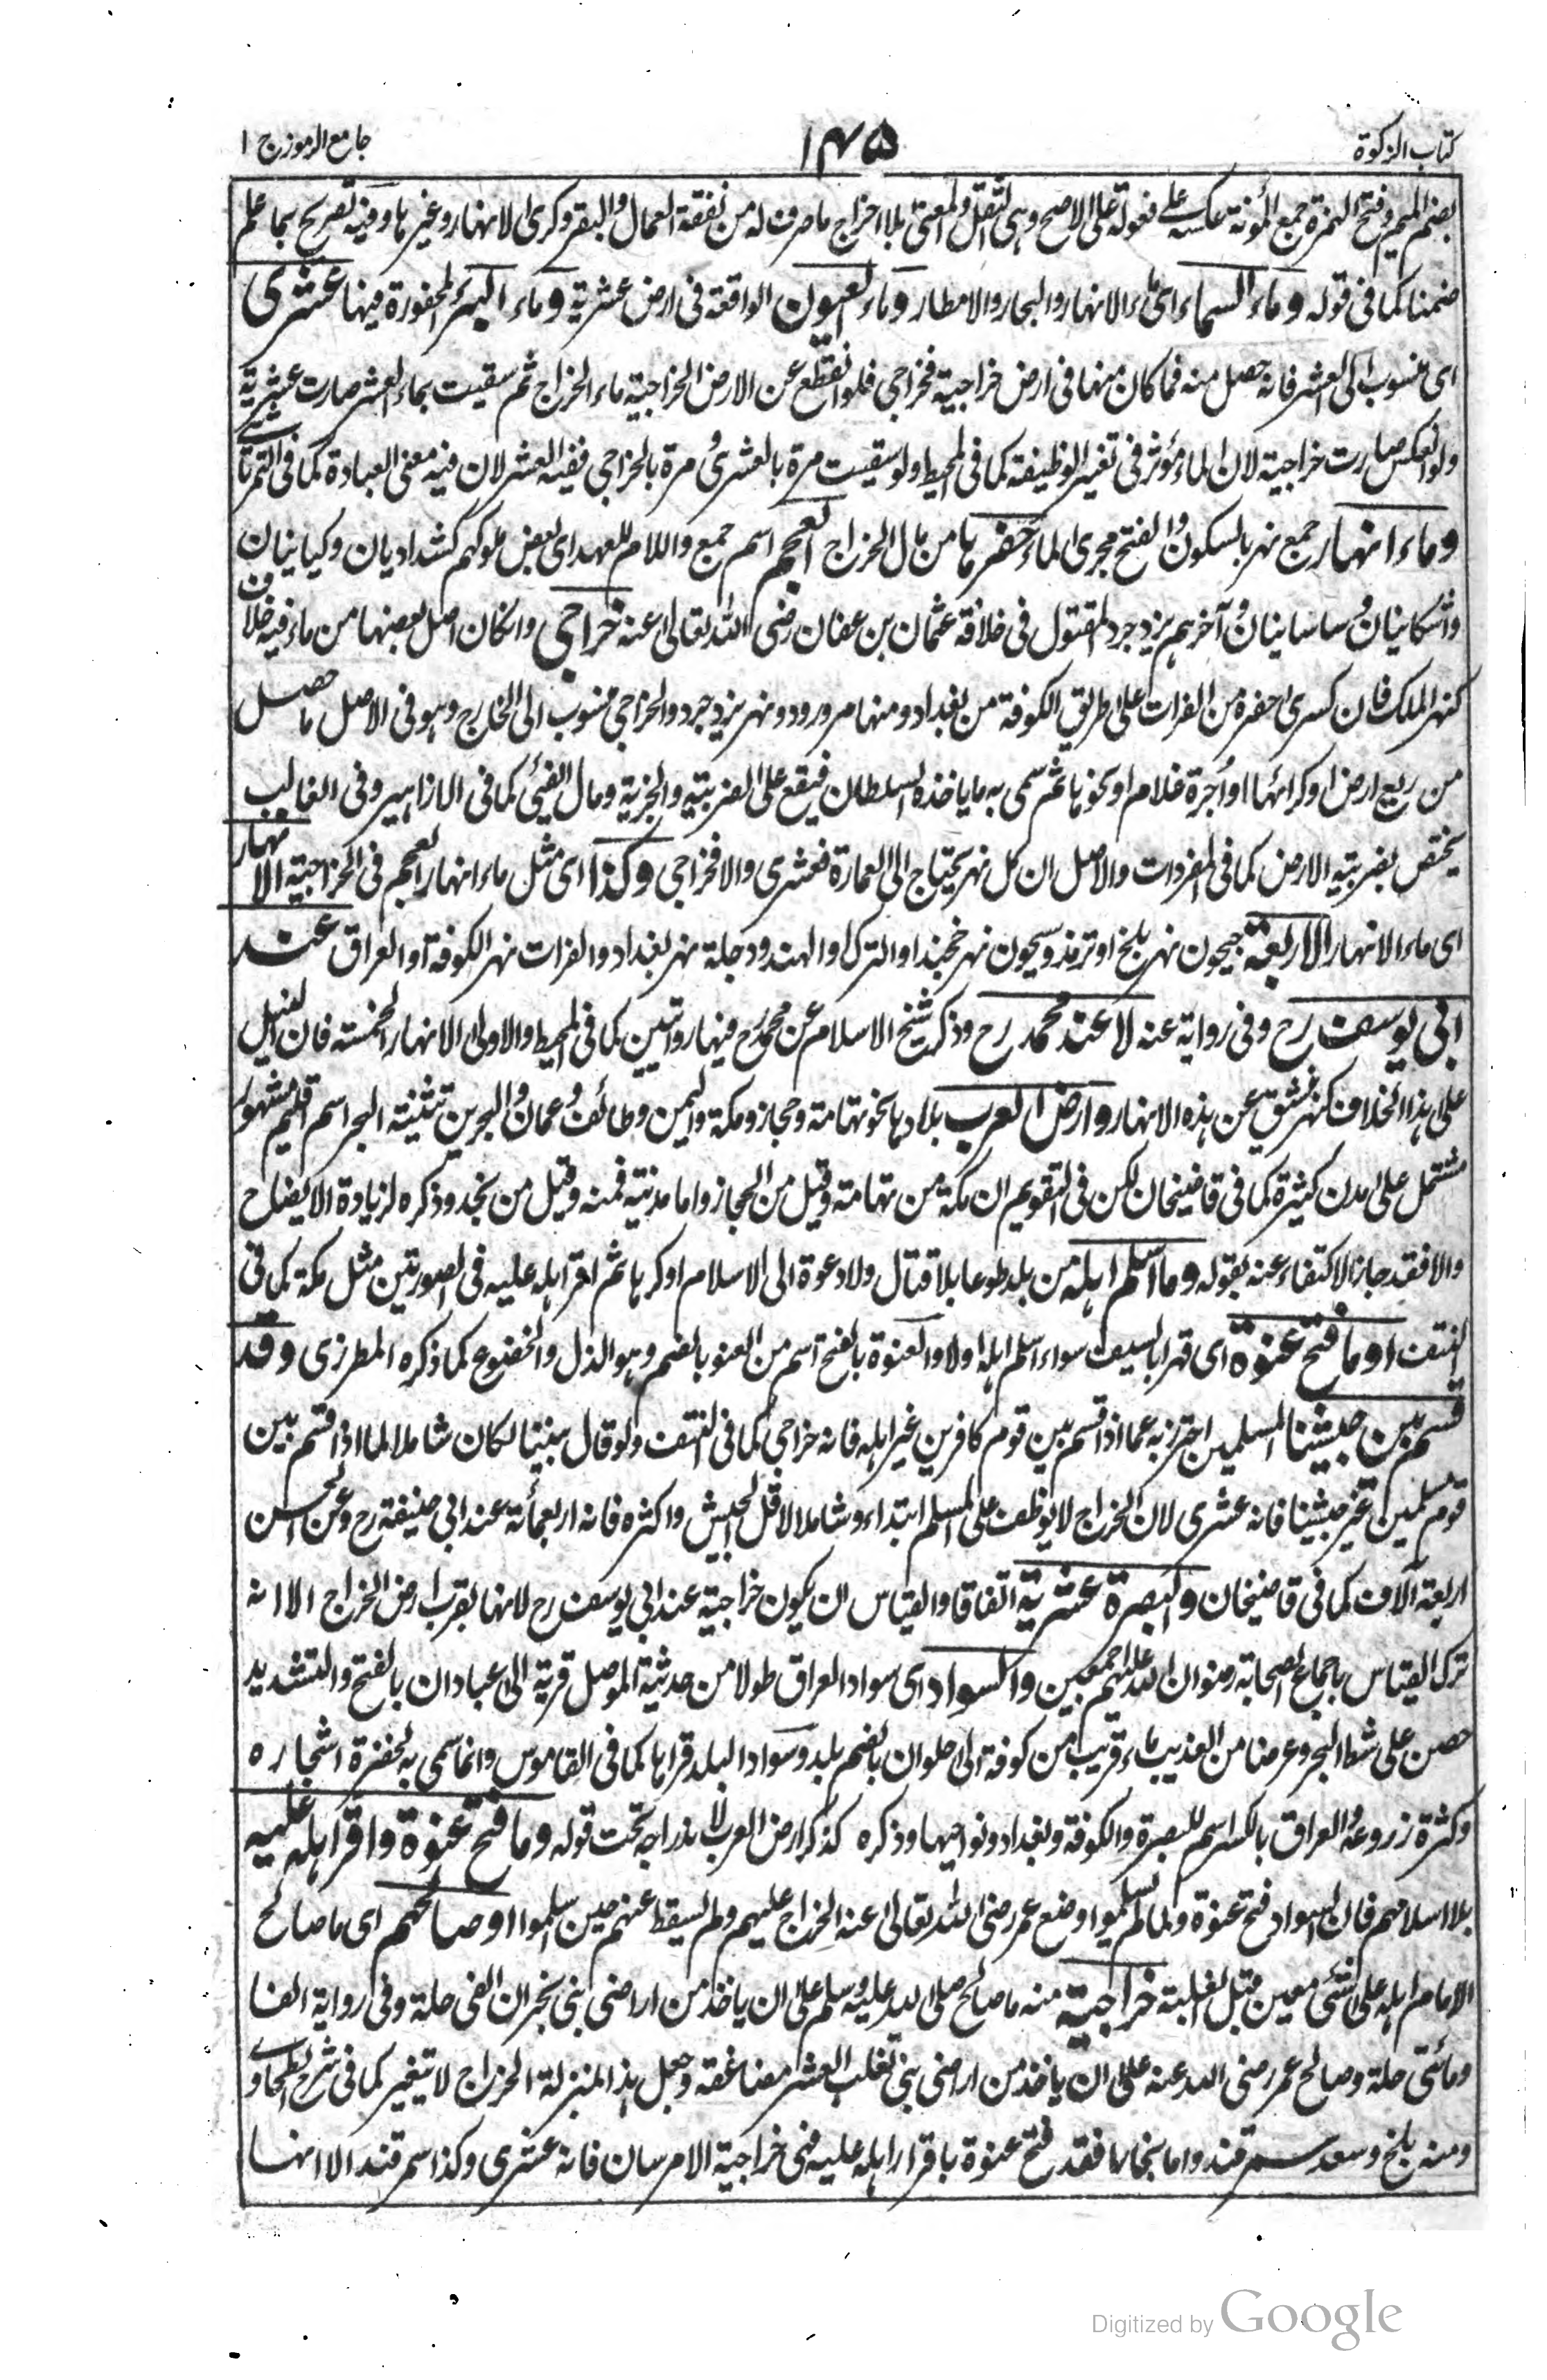 كتاب الزكوة
١٤٥
جامع الرموز ج ١
بضم الميم وفتح الهمزة جمع المؤنة عكسه على فعولة على الاصح وهى الثقل والمعنى بلا اخراج ما صرف له من نفقة العمال والبقر وكرى الانهار وغيرها وفيه تصريح بما علم
ضمنا كما فى قوله وماء السماء اى ماء الانهار والبحار والامطار وماء العيون الواقعة فى ارض عشرية وماء البير المحفورة فيها عشرى
اى منسوب الى العشر فانه حصل منه فما كان منها فى ارض خراجية فخراجى فلو انقطع عن الارض الخراجية ماء الخراج ثم سقيت بماء العشر صارت عشرية
ولو انعكس صارت خراجية لان الماء مؤثر فى تغير الوظيفة كما فى المحيط ولو سقيت مرة بالعشرى ومرة بالخراجى ففيه العشر لان فيه معنى العبادة كما فى التمرتاشى
وماء انهار جمع نهر بالسكون والفتح مجرى الماء حفرها من مال الخراج العجم اسم جمع واللام للعهد اى بعض ملوكهم كشداديان وكيانيان
واشكانيان وساسانيان وآخرهم يزدجرد المقتول فى خلافة عثمان بن عفان رضى الله تعالى عنه خراجى وان كان اصل بعضها من ماء فيه خلاف
كنهر الملك فان كسرى حفره من الفرات على طريق الكوفة من بغداد ومنها مرورود ونهر يزدجرد والخراجى منسوب الى الخارج وهو فى الاصل ما حصل
من ريع ارض او كرائها او اجرة غلام او نحوها ثم سمى به ما ياخذه السلطان فيقع على الضريبة والجزية ومال الفيئ كما فى الازاهير وفى الغالب
يختص بضريبة الارض كما فى المفردات والاصل ان كل نهر يحتاج الى العمارة فعشرى والا فخراجى وكذا اى مثل ماء انهار العجم فى الخراجية الانهار
اى ماء الانهار الاربعة جيحون نهر بلخ او ترمذ وسيحون نهر خجند او الترك او الهند ودجلة نهر بغداد والفرات نهر الكوفة او العراق عند
ابى يوسف رح وفى رواية عنه لا عند محمد رح وذكر شيخ الاسلام عن محمد رح فيها روايتين كما فى المحيط والاولى الانهار الخمسة فان النيل
على هذا الخلاف كنهر نشق عن هذه الانهار وارض العرب بلادها نحو تهامة وحجاز ومكة واليمن وطائف وعمان والبحرين تثنية البحر اسم اقليم مشهور
مشتمل على مدن كثيرة كما فى قاضيخان لكن فى التقويم ان مكة من تهامة وقيل من الحجاز واما مدينة فمنه وقيل من نجد وذكره لزيادة الايضاح
والا فقد جاز الاكتفاء عنه بقوله وما اسلم اهله من بلد طوعا بلا قتال ولا دعوة الى الاسلام او كرها ثم اقر اهله عليه فى الصورتين مثل مكة كما فى
النتف او ما فتح عنوة اى قهرا بالسيف سواء اسلم اهله اولا والعنوة بالفتح اسم من العنو بالضم وهو الذل والخضوع كما ذكره المطرزى وقد
قسم بين جيشنا المسلمين احترز به عما اذا قسم بين قوم كافرين غير اهله فانه خراجى كما فى النتف ولو قال بيننا لكان شاملا لما اذا قسم بين
قوم مسلمين غير جيشنا فانه عشرى لان الخراج لا يوظف على المسلم ابتداء وشاملا لاقل الجيش واكثره فانه اربعمائة عند ابى حنيفة رح وعن الحسن
اربعة آلاف كما فى قاضيخان والبصرة عشرية اتفاقا والقياس ان يكون خراجية عند ابى يوسف رح لانها بقرب ارض الخراج الا انه
ترك القياس باجماع الصحابة رضوان الله عليهم اجمعين والسواد اى سواد العراق طولا من حديثة الموصل قرية الى عبادان بالفتح والتشديد
حصن على شط البحر وعرضا من العذيب ماء قريب من كوفة الى حلوان بالضم بلد وسواد البلد قراها كما فى القاموس وانما سمى به لخضرة اشجاره
وكثرة زروعه والعراق بالكسر اسم للبصرة والكوفة وبغداد ونواحيها وذكره كذكر ارض العرب لاندراجه تحت قوله وما فتح عنوة واقر اهله عليه
بلا اسلامهم فان السواد فتح عنوة ولما لم يسلموا وضع عمر رضى الله تعالى عنه الخراج عليهم ولم يسقط عنهم حين اسلموا او صالحهم اى ما صالح
الامام اهله على شئى معين قبل الغلبة خراجية منه ما صالح صلى الله عليه وسلم على ان ياخذ من اراضى بنى نجران الفى حلة وفى رواية الفا
ومائتى حلة وصالح عمر رضى الله عنه على ان ياخذ من اراضى بنى تغلب العشر مضاعفة وجعل هذا بمنزلة الخراج لا يتغير كما فى شرح الطحاوى
ومنه بلخ وسعد سمرقند واما بخارا فقد فتح عنوة باقرار اهله عليه فهى خراجية الا مرسان فانه عشرى وكذا سمرقند الا انها
Digitized by Google